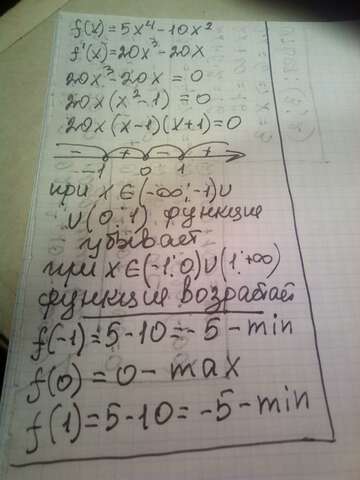 f(x) = 5x⁴ - 10x²
f'(x) = 20x³ - 20x
20x³ - 20x = 0
20x(x² - 1) = 0
20x(x - 1)(x + 1) = 0
- + - +
-1 0 1
при x ∈ (-∞; -1) ∪
∪ (0; 1) функция
убывает
при x ∈ (-1; 0) ∪ (1; +∞)
функция возрастает
f(-1) = 5 - 10 = -5 - min
f(0) = 0 - max
f(1) = 5 - 10 = -5 - min